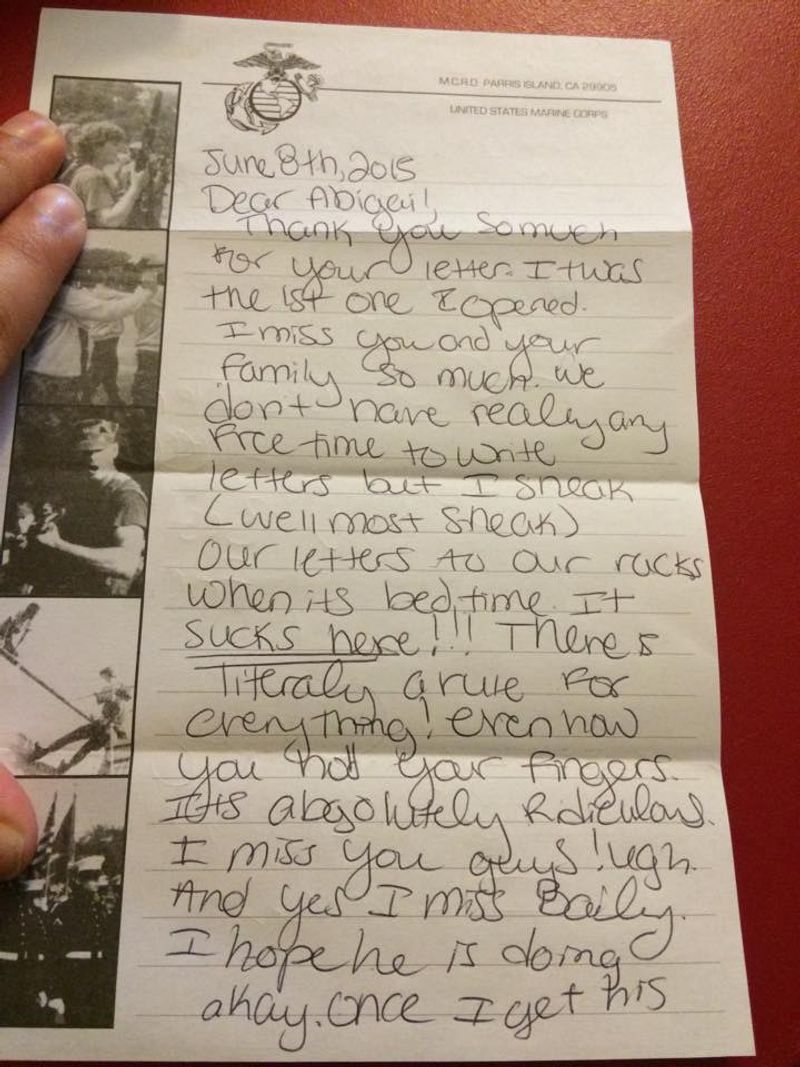 M.C.R.D. PARRIS ISLAND, CA 29905
UNITED STATES MARINE CORPS
June 8th, 2015
Dear Abigail!,
Thank you so much
for your letter. It was
the 1st one I opened.
I miss you and your
family so much. We
don't have really any
free time to write
letters but I sneak
(well most sneak)
Our letters to our racks
when its bed time. It
sucks here!!! There s
literaly a rule for
everything! even how
you hold your fingers.
Its absolutely Rdiculous.
I miss you guys! ugh.
And yes I miss Baily.
I hope he is doing
okay. Once I get his